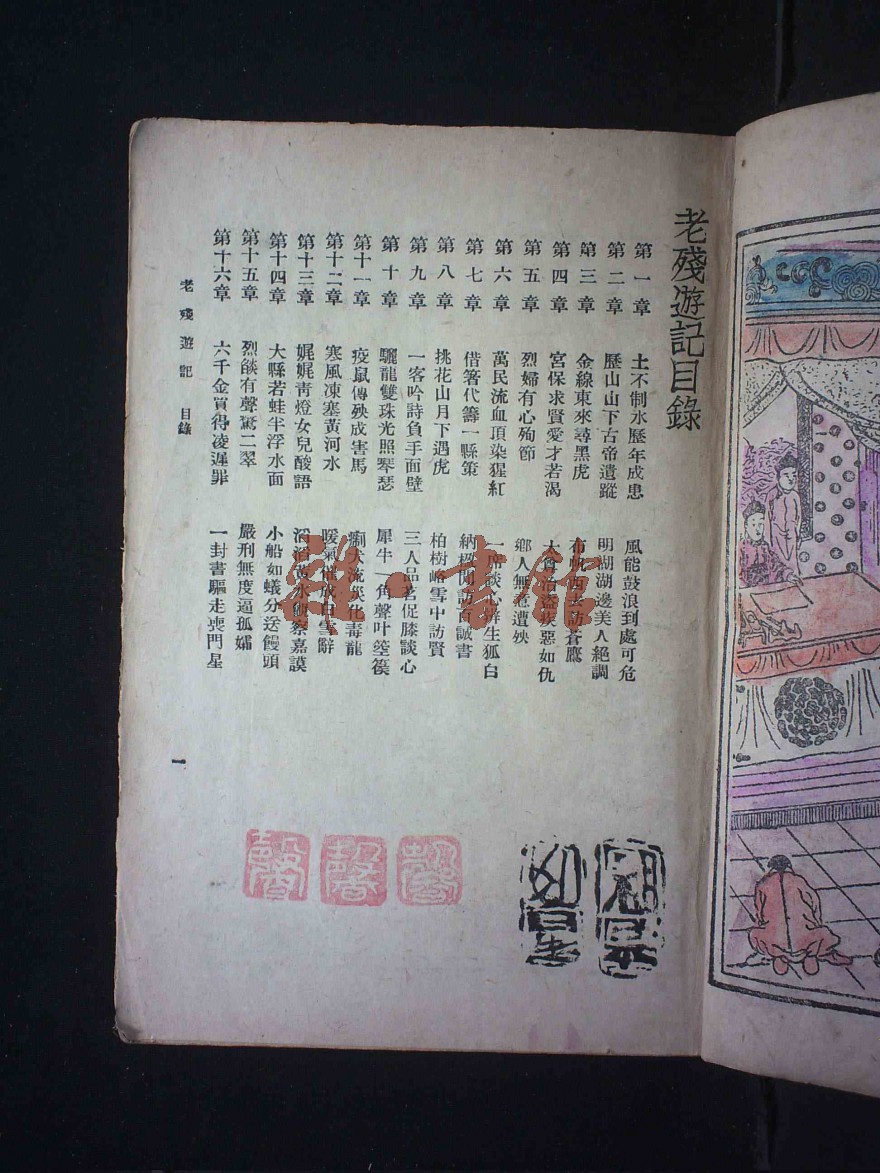 老殘遊記目錄
第一章 土不制水歷年成患 風能鼓浪到處可危
第二章 歷山山下古帝遺蹤 明湖湖邊美人絕調
第三章 金線東來尋黑虎 布帆西去訪蒼鷹
第四章 宮保求賢愛才若渴 太尊治盜疾惡如仇
第五章 烈婦有心殉節 鄉人無意遭殃
第六章 萬民流血頂染猩紅 一席談心辯生狐白
第七章 借箸代籌一縣策 納楹閒訪百誠書
第八章 桃花山月下遇虎 柏樹峪雪中訪賢
第九章 一客吟詩負手面壁 三人品茗促膝談心
第十章 驪龍雙珠光照琴瑟 犀牛一角聲叶箜篌
第十一章 疫鼠傳殃成害馬 瘈犬流災化毒龍
第十二章 寒風凍塞黃河水 暖氣催成白雪辭
第十三章 娓娓靑燈女兒酸語 滔滔黃水觀察嘉謨
第十四章 大縣若蛙半浮水面 小船如蟻分送饅頭
第十五章 烈燄有聲驚二翠 嚴刑無度逼孤孀
第十六章 六千金買得凌遲罪 一封書驅走喪門星
老殘遊記 目錄
一
雜·書館